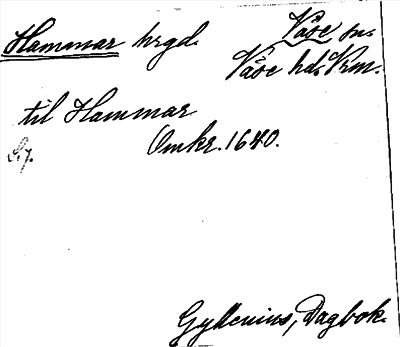 Hammar hrgd. Väse sn.
Väse hd. Vrm.
til Hammar
Omkr. 1640.
Gyllenius, Dagbok.